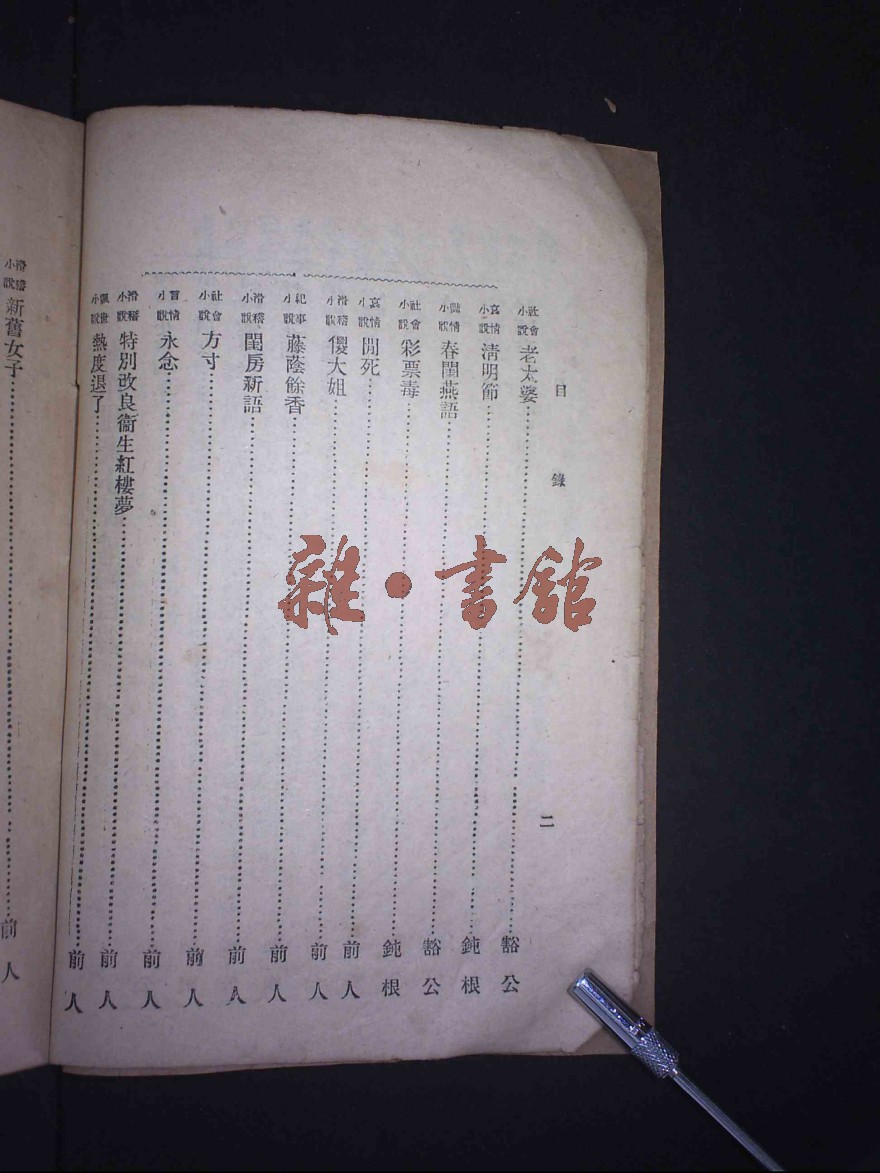 目錄 二
社會小說 老太婆 豁公
哀情小說 清明節 鈍根
豔情小說 春閨燕語 豁公
社會小說 彩票毒 鈍根
哀情小說 閒死 前人
滑稽小說 傻大姐 前人
紀事小說 藤蔭餘香 前人
滑稽小說 閨房新語 前人
社會小說 方寸 前人
言情小說 永念 前人
滑稽小說 特別改良衞生紅樓夢 前人
小說 熱度退了 前人
滑稽小說 新舊女子 前人
雜·書館